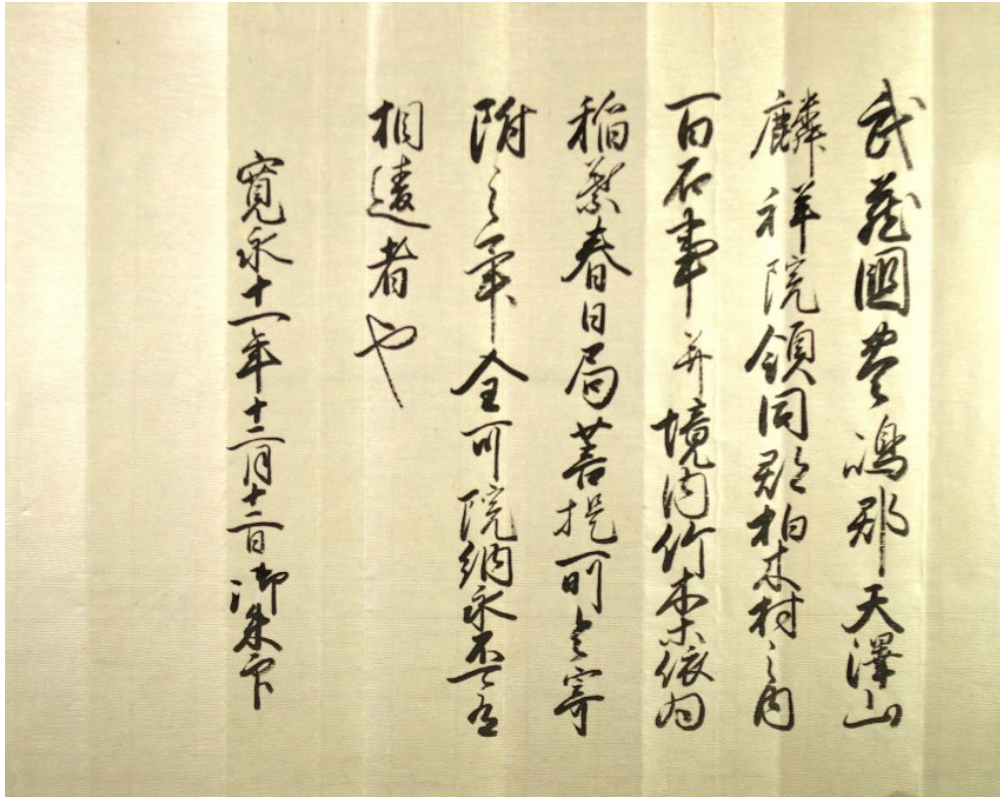 武蔵國豊嶋郡天澤山
麟祥院領同郡柏木村之内
百石事并境内竹木等依為
稲葉春日局菩提所令寄
附之訖全可院納永不可有
相違者也
寛永十一年十二月十二日御朱印